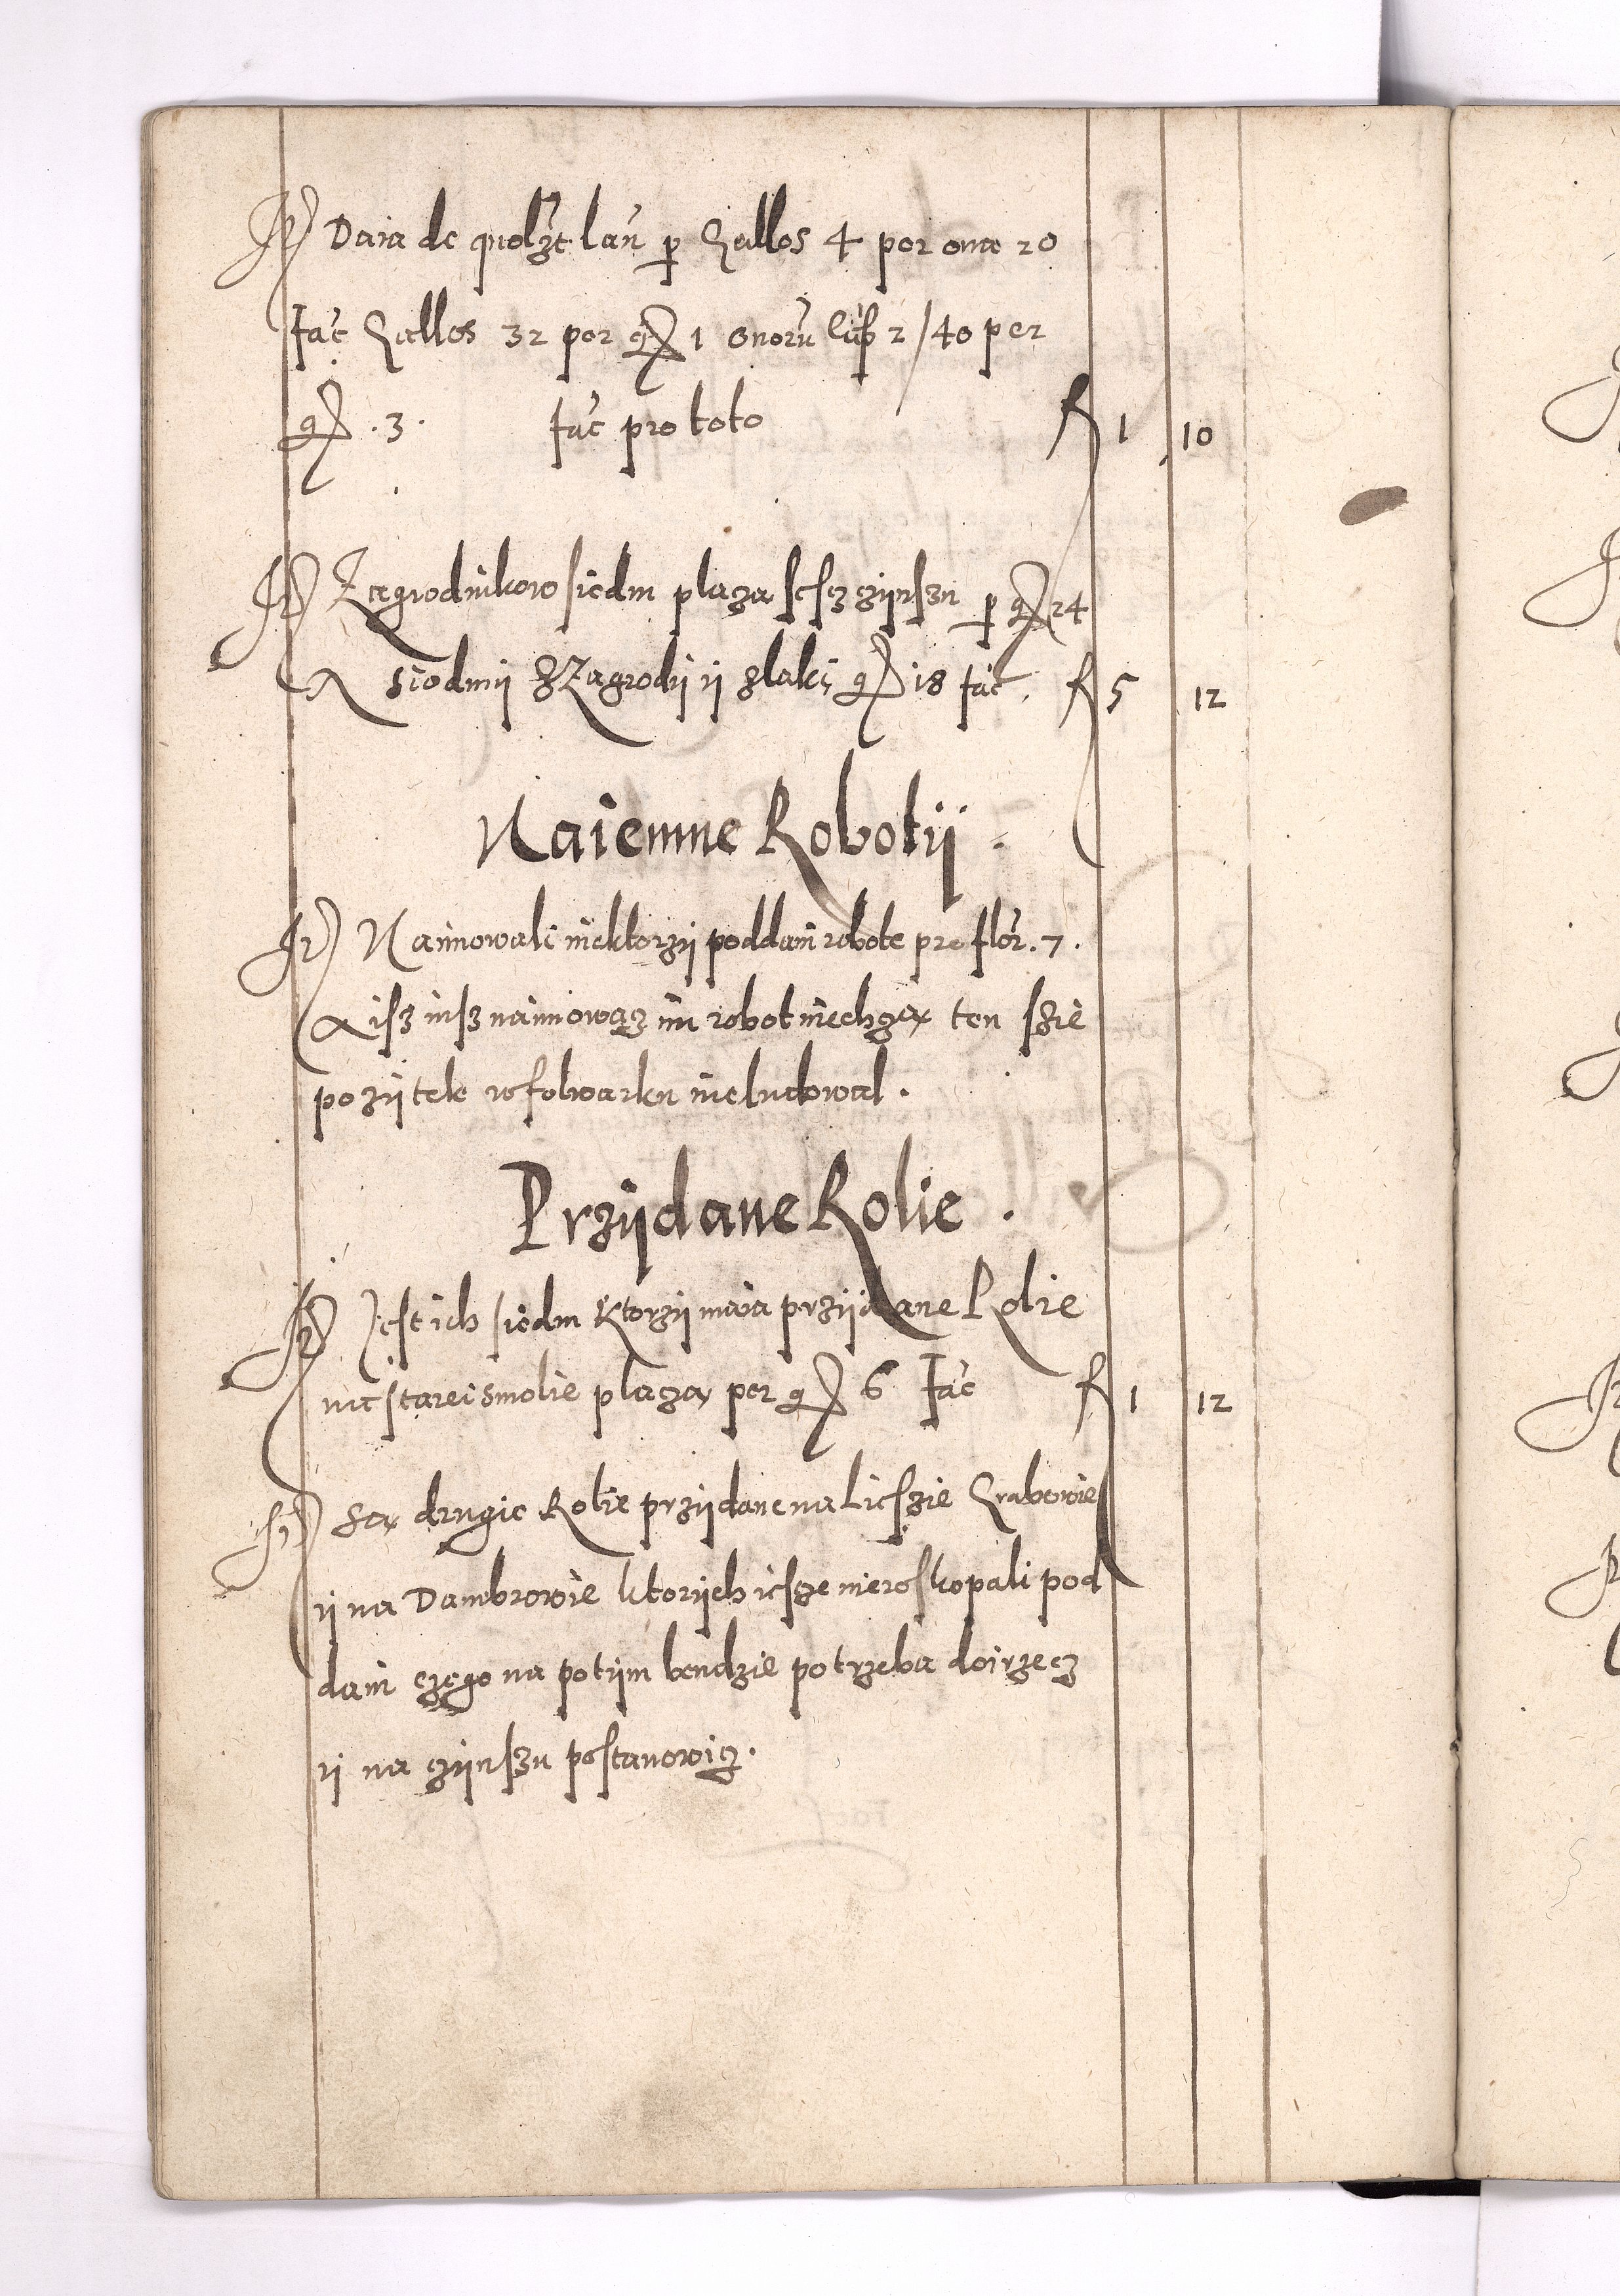 It) Daia de quolzt lan̄ p Gallos 4 per oua 20
fac̄ Gallos 32 per gr 1 ouorū sūp 2/40 per
gr .3. fac̄ pro toto f 1 10
It) Zagrodnikow siedm plaza sesz czijnszu p gr 24
A siodmij z Zagrodij ij zlaki gr 18 fac̄ f 5 12
Naiemne Robotij
It) Naimowali niektorzij poddani robote pro flor̄. 7.
A isz insz naimowacz im robot niechcza ten szie
pozijtek w folwarku nieludowal.
Przijdane Rolie.
It) Jest ich siedm ktorzij maia przijdane Rolie
na starei smolie plaza per gr 6 fac̄ f 1 12
It) Sa drugie Rolie przijdane na Lieszie Grabowie
ij na Dambrowie ktorijch iesze nieroskopali pod
dani czego na potijm bendzie potrzeba doirzecz
ij na czijnszu postanowicz.